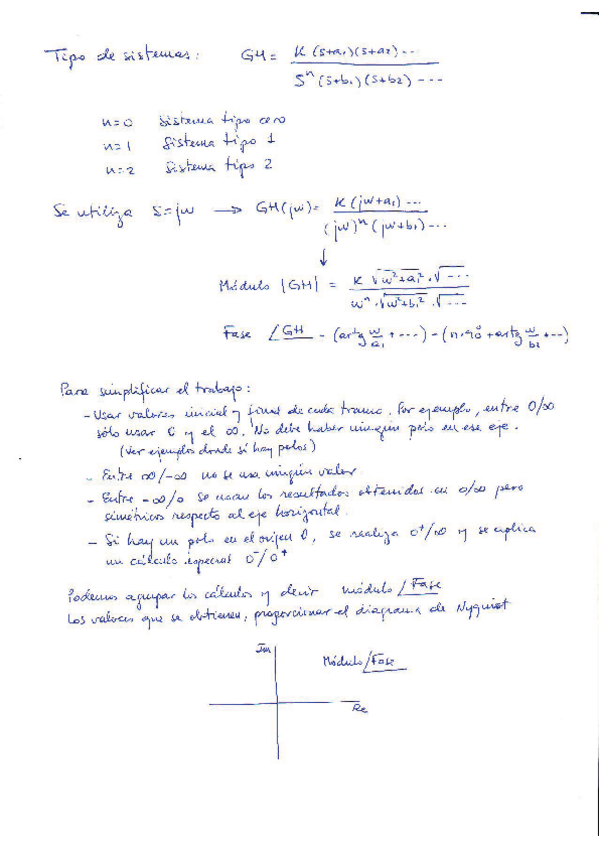 Tipo de sistemas: GH = K(s+a₁)(s+a₂)... / Sⁿ(s+b₁)(s+b₂)---
n=0 Sistema tipo cero
n=1 Sistema tipo 1
n=2 Sistema tipo 2
Se utiliza s=jw → GH(jw) = K(jw+a₁)... / (jw)ⁿ(jw+b₁)...
↓
Módulo |GH| = K √w²+a₁² · √--- / wⁿ · √w²+b₁² · √---
Fase ∠GH - (artg w/a₁ + ...) - (n·90° + artg w/b₁ + ...)
Para simplificar el trabajo:
- Usar valores inicial y final de cada tramo. Por ejemplo, entre 0/∞
sólo usar 0 y el ∞. No debe haber ningún polo en ese eje.
(Ver ejemplos donde si hay polos)
- Entre ∞/-∞ no se usa ningún valor
- Entre -∞/0 se usan los resultados obtenidos en 0/∞ pero
simétricos respecto al eje horizontal.
- Si hay un polo en el origen 0, se realiza 0⁺/∞ y se aplica
un cálculo especial 0⁻/0⁺
Podemos agrupar los cálculos y decir módulo/Fase
Los valores que se obtienen, proporcionan el diagrama de Nyquist
Im
Módulo/Fase
Re